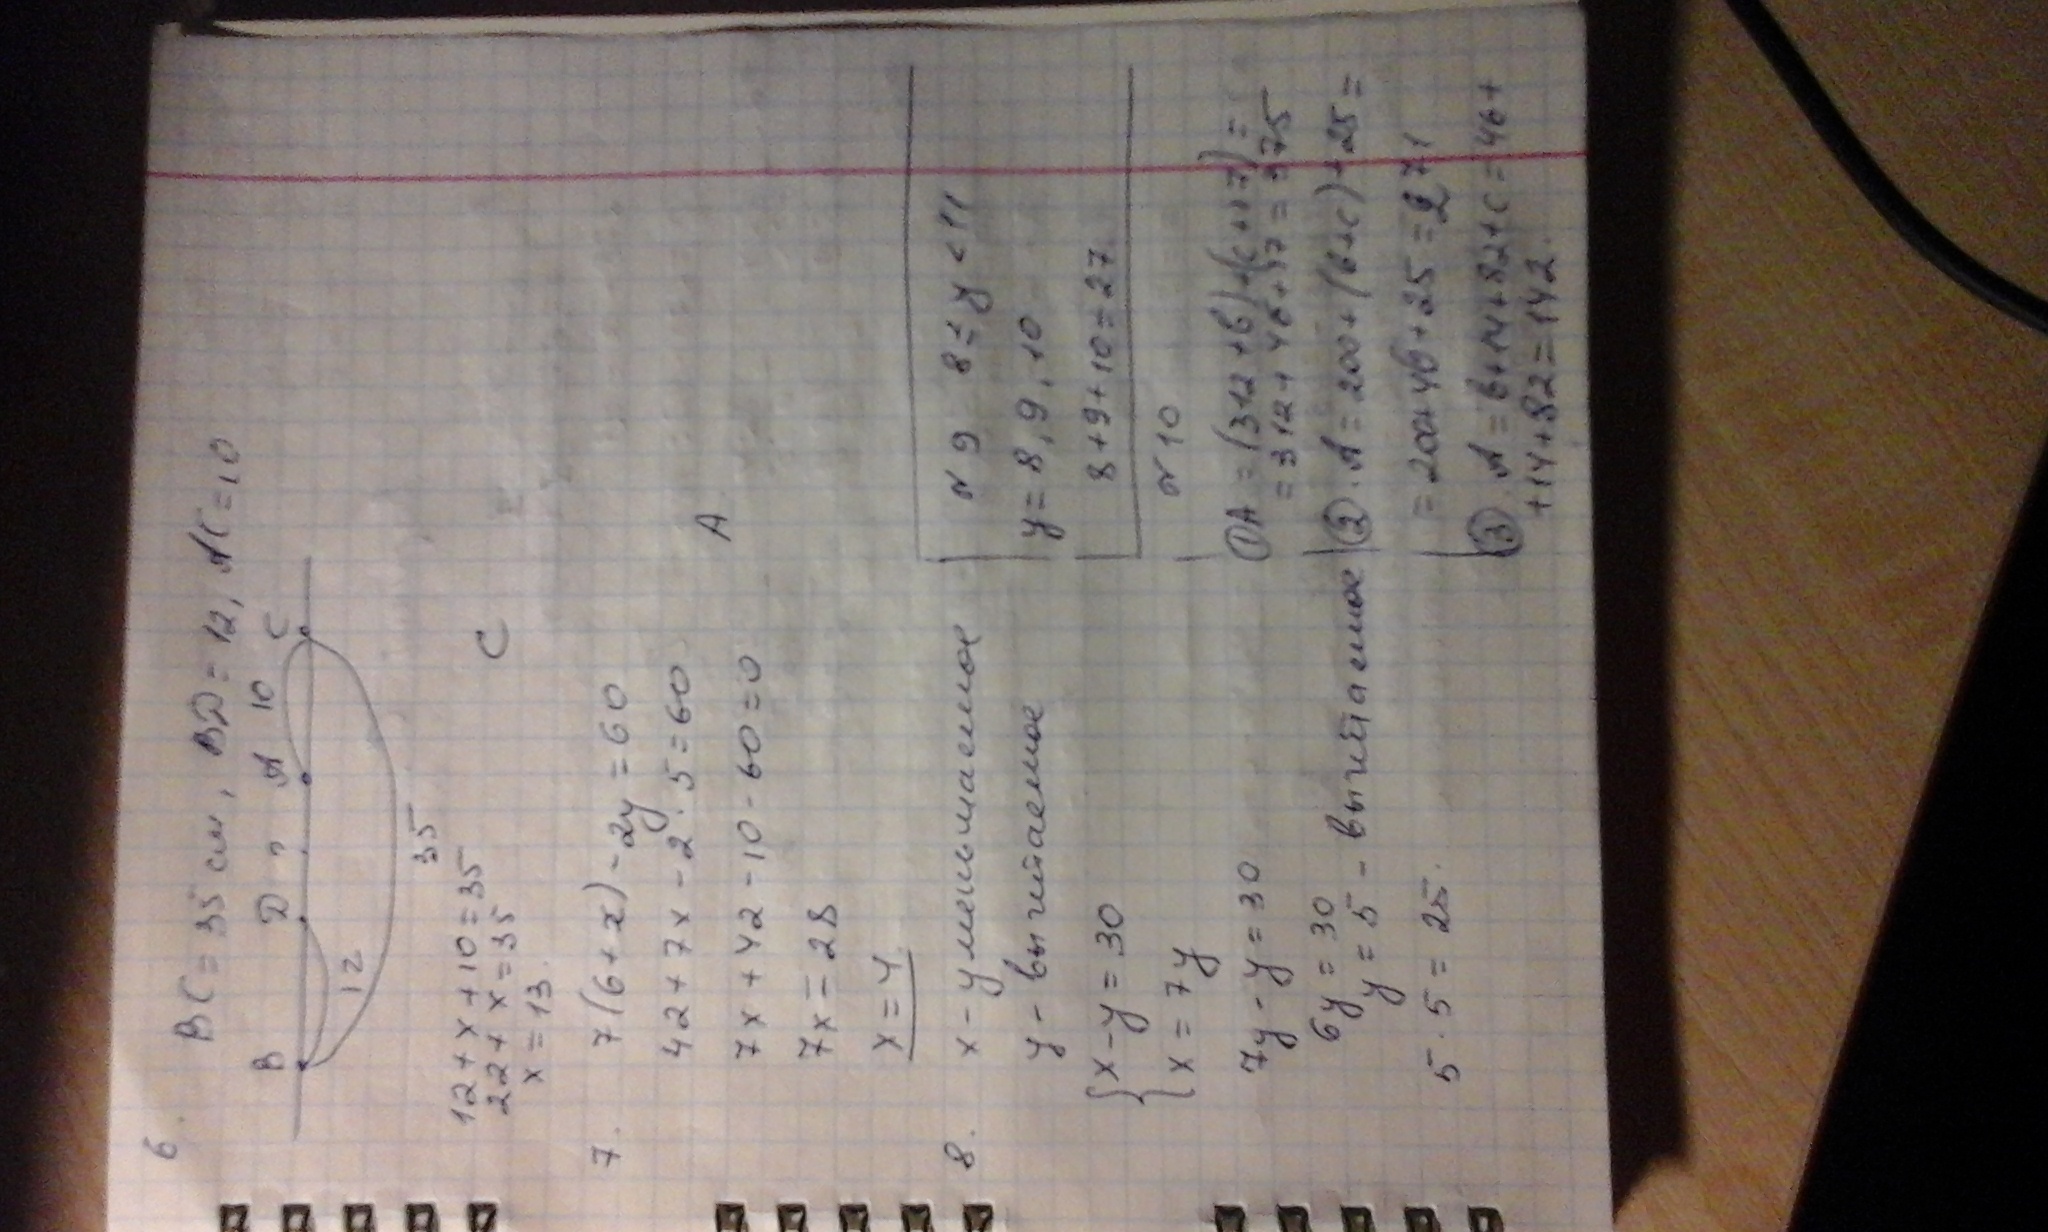 6. BC = 35 см, BD = 12, AC = 10
B D ? A 10 C
12
35
12 + x + 10 = 35
22 + x = 35
x = 13.
C
7. 7(6+x) - 2y = 60
42 + 7x - 2·5 = 60
7x + 42 - 10 - 60 = 0
7x = 28
x = 4
A
8. x - уменьшаемое
y - вычитаемое
{ x - y = 30
{ x = 7y
7y - y = 30
6y = 30
y = 5 - вычитаемое
5·5 = 25.
№ 9 8 ≤ y < 11
y = 8, 9, 10
8+9+10=27.
№ 10
① A = (312 + b) + (c + 17) =
= 312 + 46 + 17 = 375
② A = 200 + (b+c) + 25 =
= 200 + 46 + 25 = 271
③ A = b + 14 + 82 + c = 46 +
+ 14 + 82 = 142.